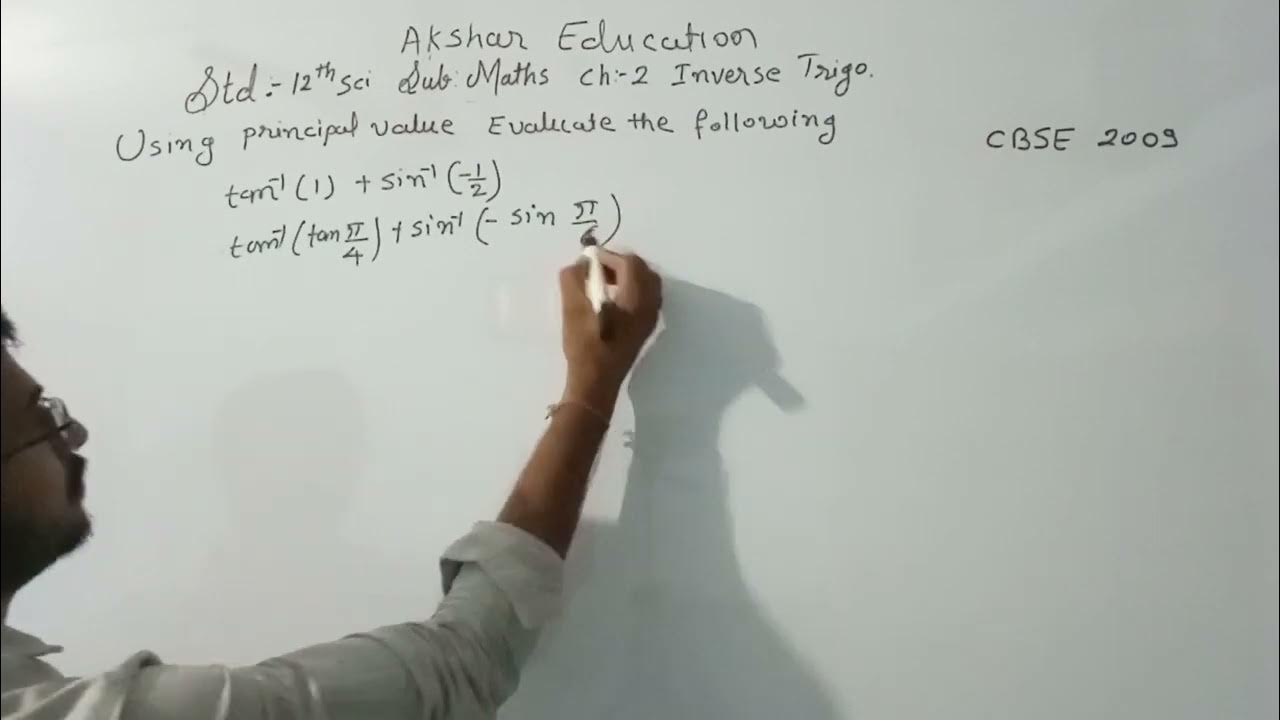 Akshar Education
Std:- 12th sci Sub: Maths Ch:-2 Inverse Trigo.
Using principal value Evaluate the following
CBSE 2009
tan⁻¹(1) + sin⁻¹(-1/2)
tan⁻¹(tan π/4) + sin⁻¹(- sin π/6)